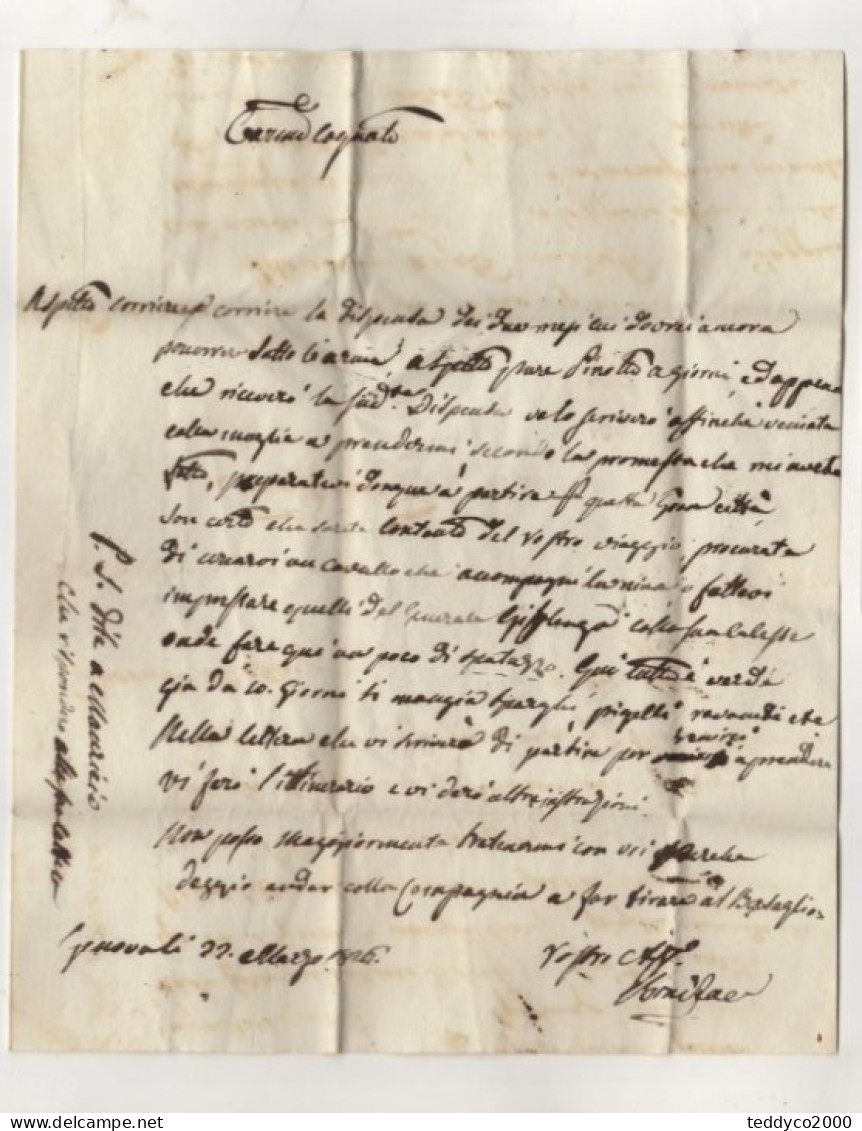 Carmo Cognato
Aspetto corriere p corriere la dispensa dei due mesi cui dovrei ancora
sotto l'armi, aspetto pure Pinotto a giorni, ed appena
che riceverò la sudta. Dispensa ve lo scriverò affinché veniate
colla moglie a prendermi secondo la promessa che mi avete
fatto, preparatevi donque a partire p questa Gran città,
son certo che sarete contento del vostro viaggio, procurate
di un cavallo che accompagni la nina o fattevi
imprestare quello del Generale colla sua
onde fare qui un poco di spatuzzo. Qui tutto è verde
già da 10. giorni si mangia sparghi, piselli, ravanelli etc
Nella lettera che vi scriverò di partire per venirmi a prendere
vi farò l'ittinerario e vi darò altre instruzioni.
Non posso maggiormente trattenermi con voi perche
deggio andar colla Compagnia a far tirare al Bersaglio
Genova li 22. Marzo
Vostro Aff.o
Bonifac
P. S. Dite a Maurizio
che risponderò alla sua lettera
teddyco2000